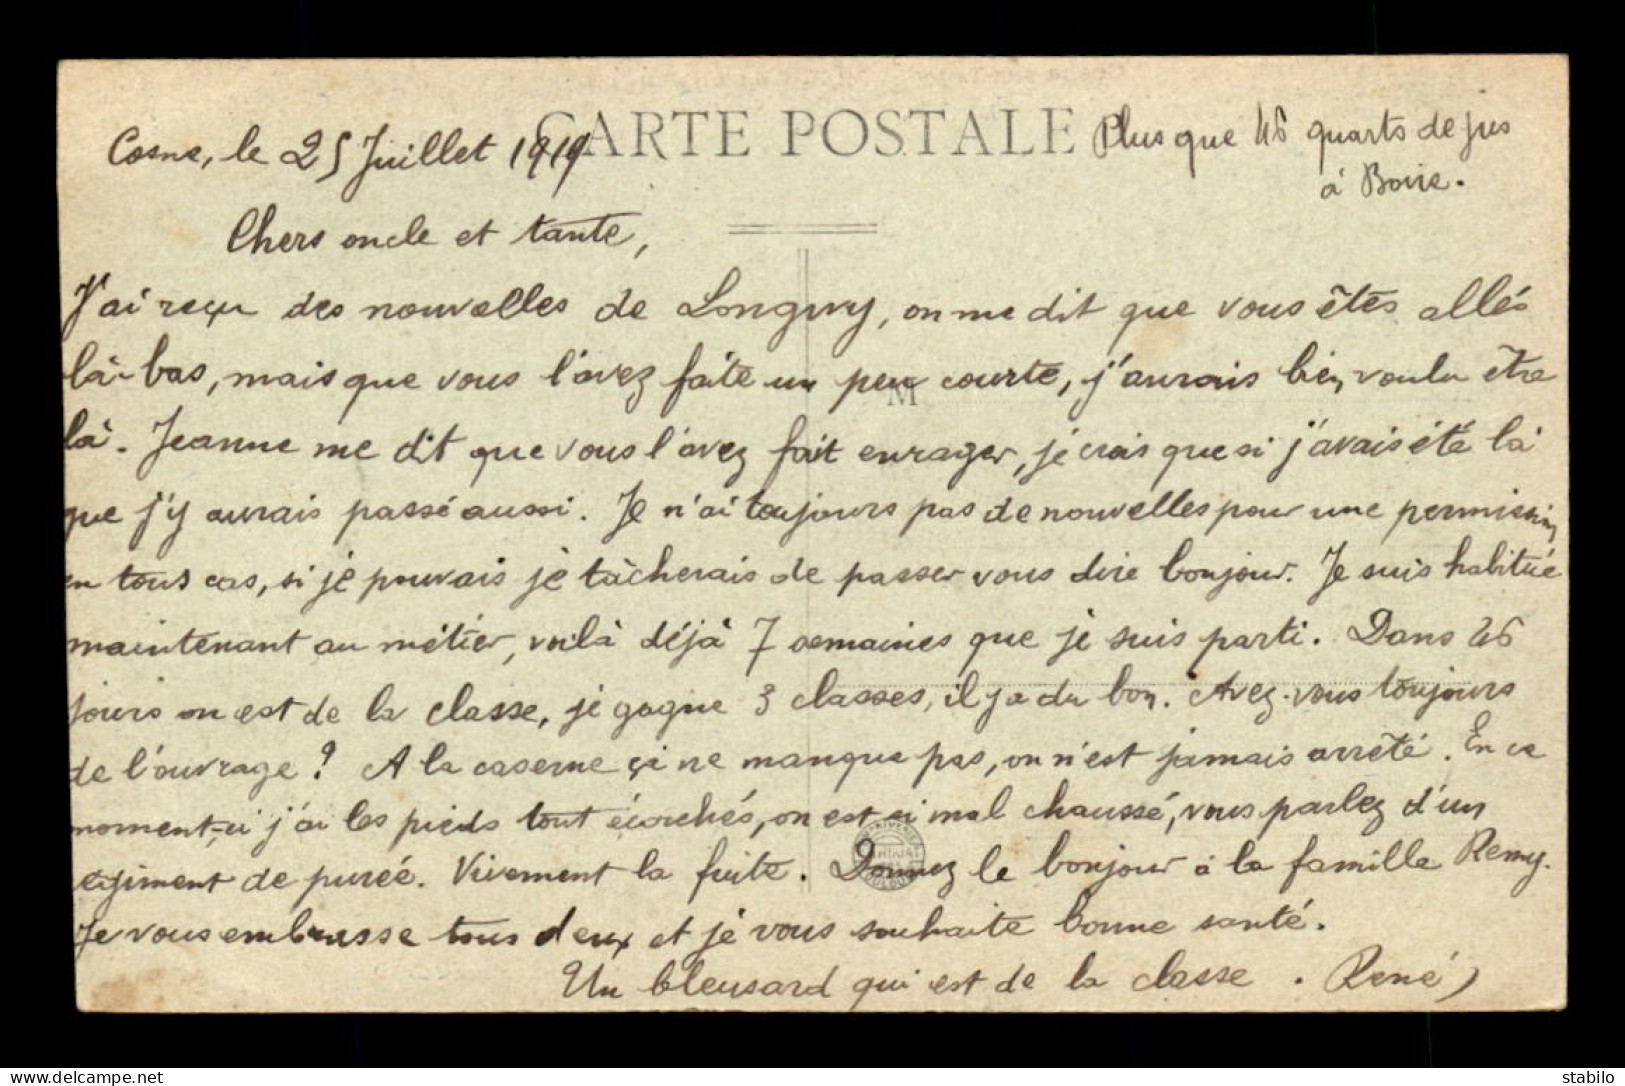 CARTE POSTALE
Plus que 46 quarts de jus
à Boire.
Cosne, le 25 Juillet 1919
Chers oncle et tante,
J'ai reçu des nouvelles de Longwy, on me dit que vous êtes allés
là-bas, mais que vous l'avez faite un peu courte, j'aurais bien voulu être
là. Jeanne me dit que vous l'avez fait enrager, je crois que si j'avais été là
que j'y aurais passé aussi. Je n'ai toujours pas de nouvelles pour une permission
en tous cas, si je pouvais je tâcherais de passer vous dire bonjour. Je suis habitué
maintenant au métier, voilà déjà 7 semaines que je suis parti. Dans 46
jours on est de la classe, je gagne 3 classes, il y a du bon. Avez-vous toujours
de l'ouvrage ? A la caserne ça ne manque pas, on n'est jamais arrêté. En ce
moment-ci j'ai les pieds tout écorchés, on est si mal chaussé, vous parlez d'un
régiment de purée. Vivement la fuite. Donnez le bonjour à la famille Remy.
Je vous embrasse tous deux et je vous souhaite bonne santé.
Un bleusard qui est de la classe. René
M
delcampe.net
stabilo